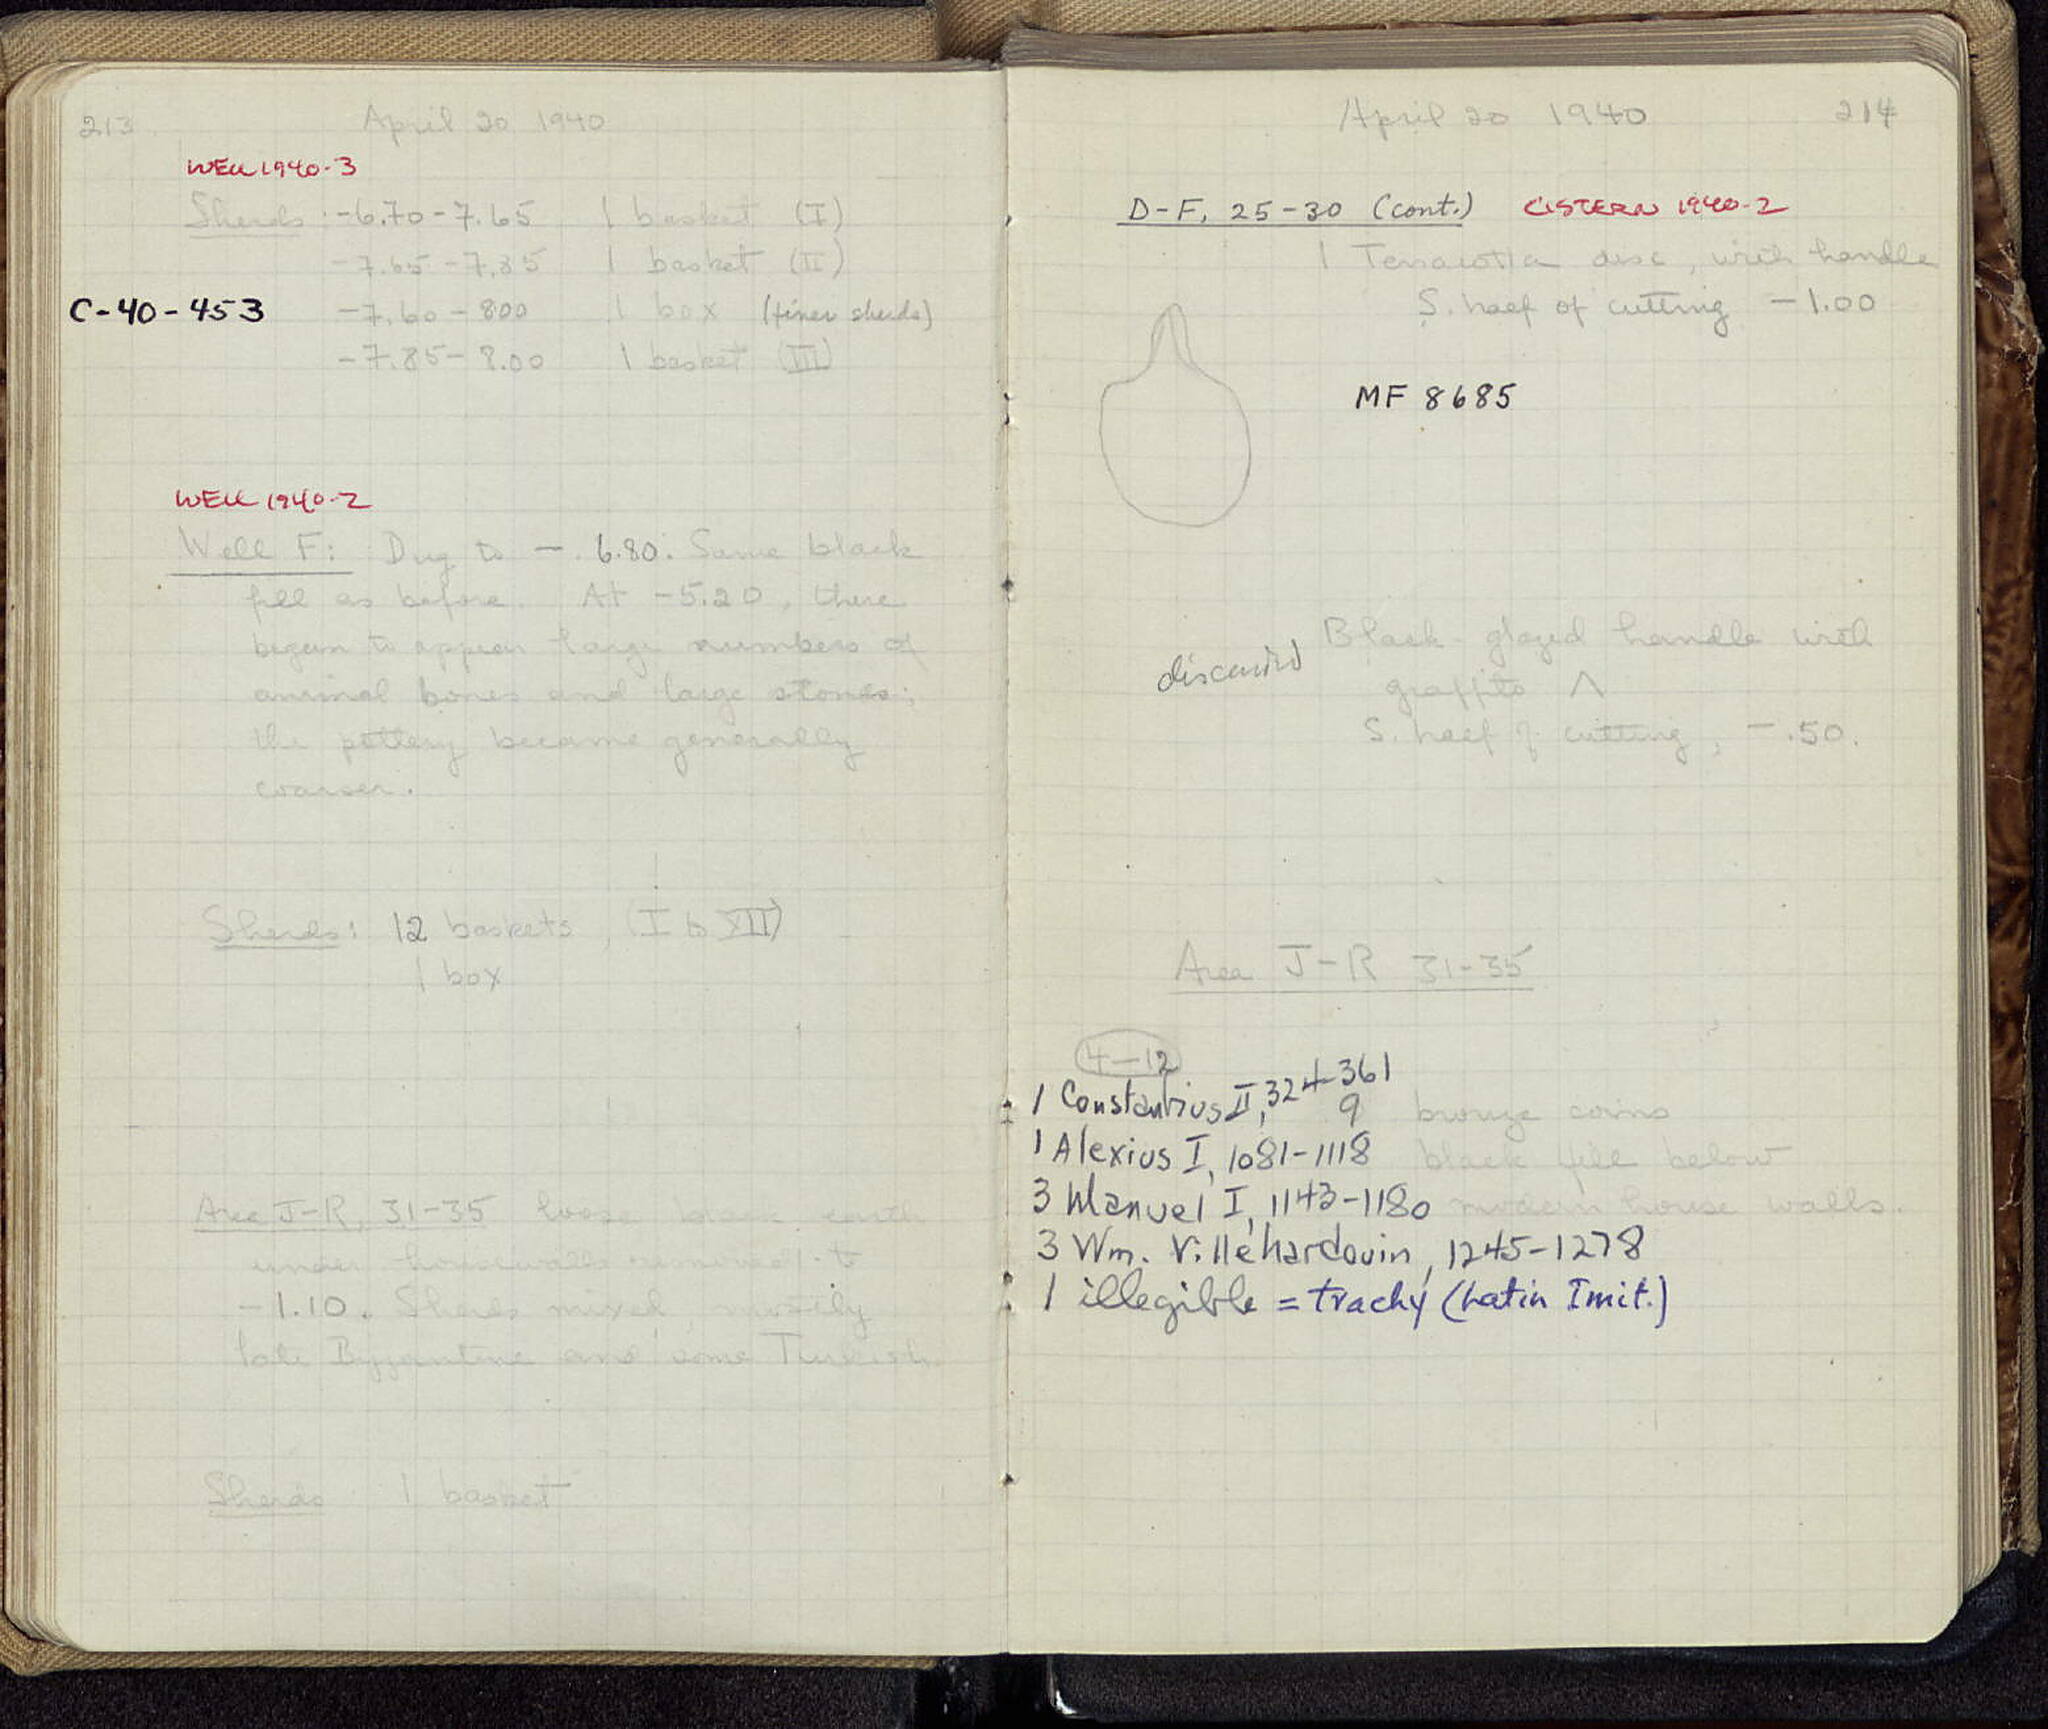 213 April 20 1940
WELL 1940-3
Sherds: -6.70-7.65 1 basket (I)
-7.65-7.85 1 basket (II)
C-40-453 -7.60-800 1 box (finer sherds)
-7.85-8.00 1 basket (III)
WELL 1940-2
Well F: Dug to -6.80. Same black
fill as before. At -5.20, there
began to appear large numbers of
animal bones and large stones;
the pottery became generally
coarser.
Sherds: 12 baskets, (I to XII)
1 box
Area J-R, 31-35 loose black earth
under housewalls removed to
-1.10. Sherds mixed, mostly
late Byzantine and some Turkish.
Sherds 1 basket
April 20 1940 214
D-F, 25-30 (cont.) CISTERN 1940-2
1 Terracotta disc, with handle
S. half of cutting -1.00
MF 8685
Black-glazed handle with
discarded
graffito Λ
S. half of cutting, -.50.
Area J-R 31-35
4-12
1 Constantius II, 324-361
9 bronze coins
1 Alexius I, 1081-1118 black fill below
3 Manuel I, 1143-1180 modern house walls.
3 Wm. Villehardouin, 1245-1278
1 illegible = trachy (Latin Imit.)